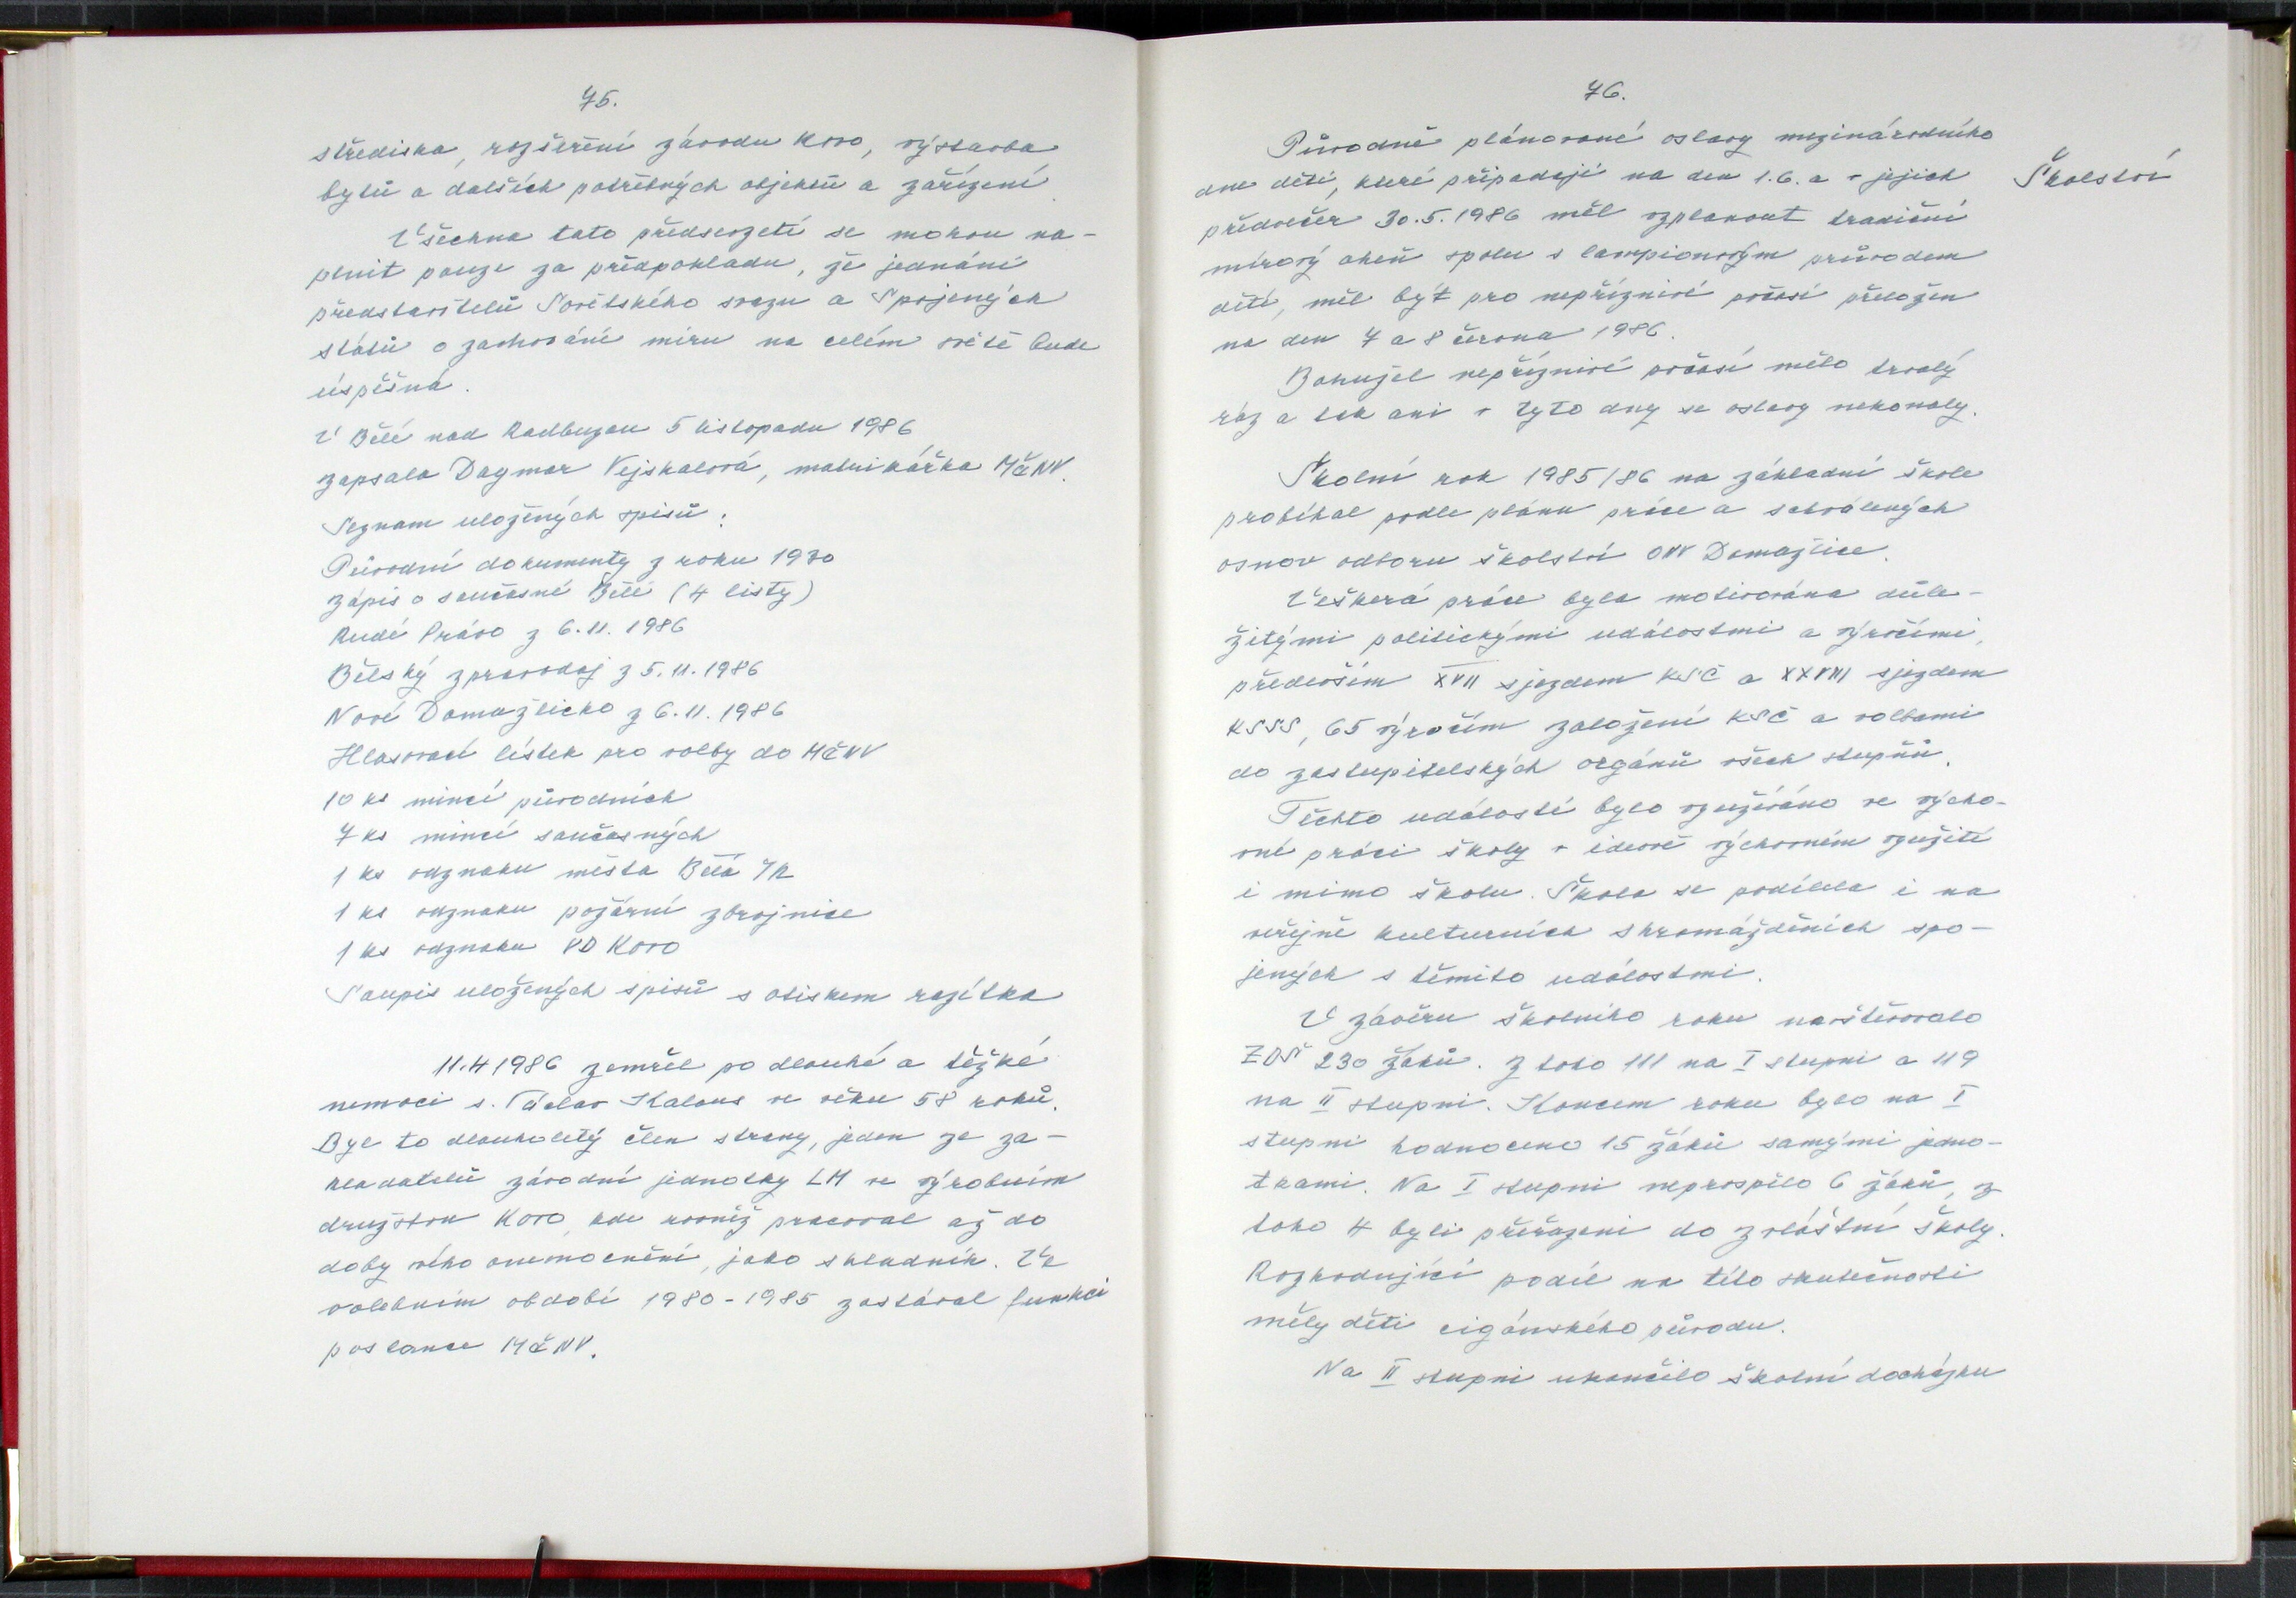 75.
střediska, rozšeření závodu Kovo, výstavba
bytů a dalších potřebných objektů a zařízení.
Všechna tato předsevzetí se mohou na-
plnit pouze za předpokladu, že jednání
představitelů Sovětského svazu a Spojených
států o zachování míru na celém světě bude
úspěšná.
V Bělé nad Radbuzou 5 listopadu 1986
zapsala Dagmar Vejskalová, matrikářka MěNV.
Seznam uložených spisů:
Původní dokumenty z roku 1930
Zápis o současné Bělé (4 listy)
Rudé Právo z 6.11.1986
Bělský zpravodaj z 5.11.1986
Nové Domažlicko z 6.11.1986
Hlasovací lístek pro volby do MěNV
10 ks mincí původních
7 ks mincí současných
1 ks odznaku města Bělá n/R
1 ks odznaku požární zbrojnice
1 ks odznaku VD Kovo
Soupis uložených spisů s otiskem razítka
11.4 1986 zemřel po dlouhé a těžké
nemoci s. Václav Kalous ve věku 58 roků.
Byl to dlouholetý člen strany, jeden ze za-
kladatelů závodní jednotky LM ve výrobním
družstvu Kovo, kde rovněž pracoval až do
doby svého onemocnění, jako skladník. Ve
volebním období 1980-1985 zastával funkci
poslance MěNV.
76.
Původně plánované oslavy mezinárodního
dne dětí, které připadají na den 1.6. a v jejich
Školství
předvečer 30.5.1986 měl vzplanout tradiční
mírový oheň spolu s lampionovým průvodem
dětí, měl být pro nepříznivé počasí přeložen
na den 7 a 8 června 1986.
Bohužel nepříznivé počasí mělo trvalý
ráz a tak ani v tyto dny se oslavy nekonaly.
Školní rok 1985/86 na základní škole
probíhal podle plánu práce a schválených
osnov odboru školství ONV Domažlice.
Veškerá práce byla motivována důle-
žitými politickými událostmi a výročími,
především XVII sjezdem KSČ a XXVII sjezdem
KSSS, 65 výročím založení KSČ a volbami
do zastupitelských orgánů všech stupňů.
Těchto událostí bylo využíváno ve výcho-
vné práci školy v ideově výchovném využití
i mimo školu. Škola se podílela i na
veřejně kulturních shromážděních spo-
jených s těmito událostmi.
V závěru školního roku navštěvovalo
ZDŠ 230 žáků. Z toho 111 na I stupni a 119
na II stupni. Koncem roku bylo na I
stupni hodnoceno 15 žáků samými jedno-
tkami. Na I stupni neprospělo 6 žáků, z
toho 4 byli přeřazeni do zvláštní školy.
Rozhodující podíl na této skutečnosti
měly děti cigánského původu.
Na II stupni ukončilo školní docházku